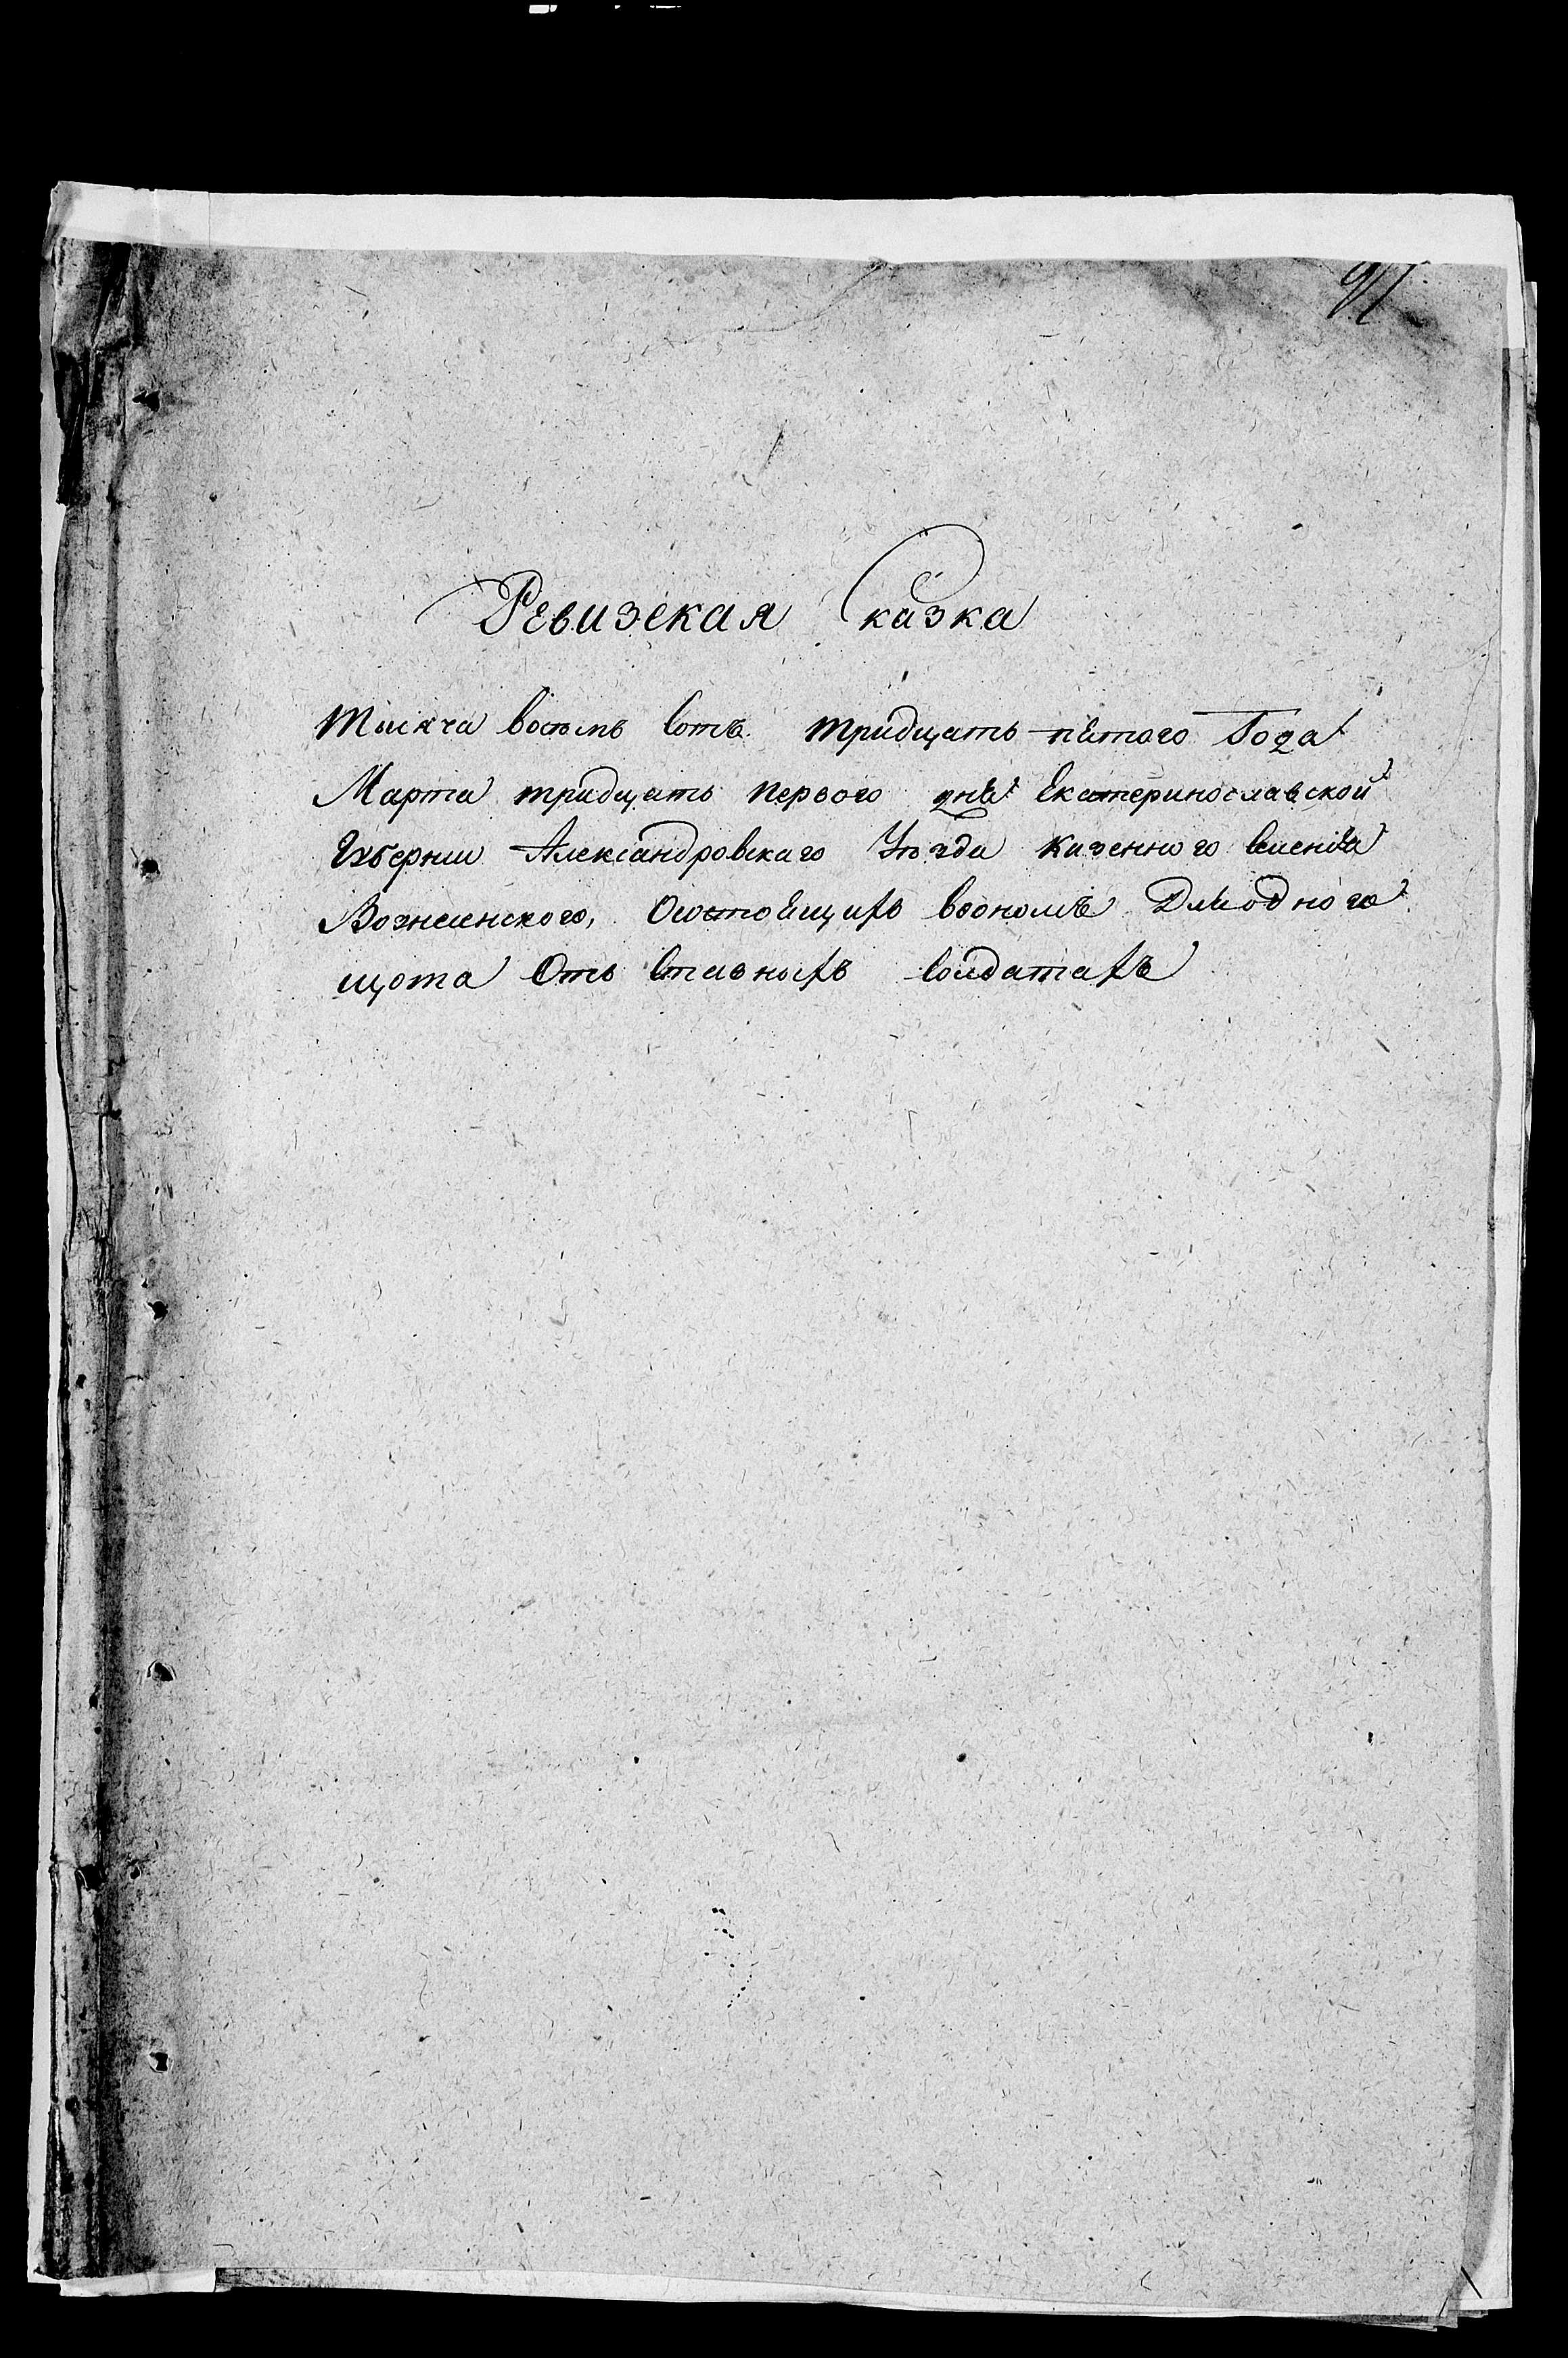 91
Ревизская Сказка
тысяча восемь сотъ тридцать пятого Года
Марта тридцать первого дня Екатеринославской
Губернии Александровскаго Уезда казенного селения
Вознесенского, Осостоящихъ воономъ Дляодного
щота Отъ ставныхъ солдатахъ